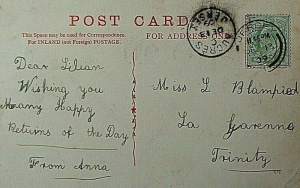 POST CARD
This Space may be used for Correspondence.
For INLAND (not Foreign) POSTAGE.
Dear Lilian
Wishing you
Many Happy
Returns of the Day
From Anna
Miss L Blampied
La Garenne
Trinity